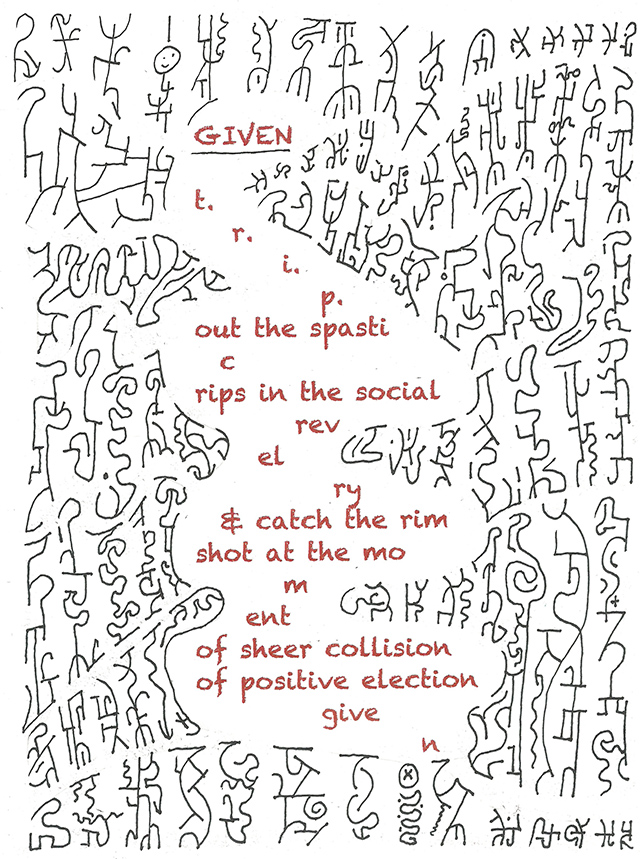 GIVEN
t.
r.
i.
p.
out the spasti
c
rips in the social
rev
el
ry
& catch the rim
shot at the mo
m
ent
of sheer collision
of positive election
give
n